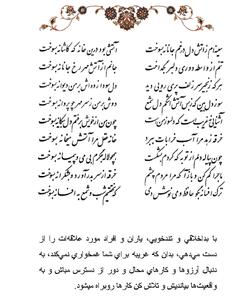 سینه‌ام زآتش دل در غم جانانه بسوخت آتشی بود درین خانه که کاشانه بسوخت
تنم از واسطه دوری دلبر بگداخت جانم از آتش مهر رخ جانانه بسوخت
هر که زنجیر سر زلف پری روی تو دید دل سودازده‌اش بر من دیوانه بسوخت
سوز دل بین که ز بس آتش اشکم دل شمع دوش بر من ز سر مهر چو پروانه بسوخت
آشنایی نه غریب است که دلسوز من است چون من از خویش برفتم دل بیگانه بسوخت
خرقه زهد مرا آب خرابات ببرد خانه عقل مرا آتش میخانه بسوخت
چون پیاله دلم از توبه که کردم بشکست همچو لاله جگرم بی می و پیمانه بسوخت
ماجرا کم کن و بازآ که مرا مردم چشم خرقه از سر بدر آورد و بشکرانه بسوخت
ترک افسانه بگو حافظ و می نوش دمی که نخفتیم شب و شمع به افسانه بسوخت
با بدخلاقي و تندخويي، ياران و افراد مورد علاقه‌ات را از
دست مي‌دهي، بدان كه غريبه براي شما غمخواري نمي‌كند، به
دنبال آرزوها و كارهاي محال و دور از دسترس مباش و به
واقعيت‌ها بيانديش و تلاش كن كارها روبراه ميشود.